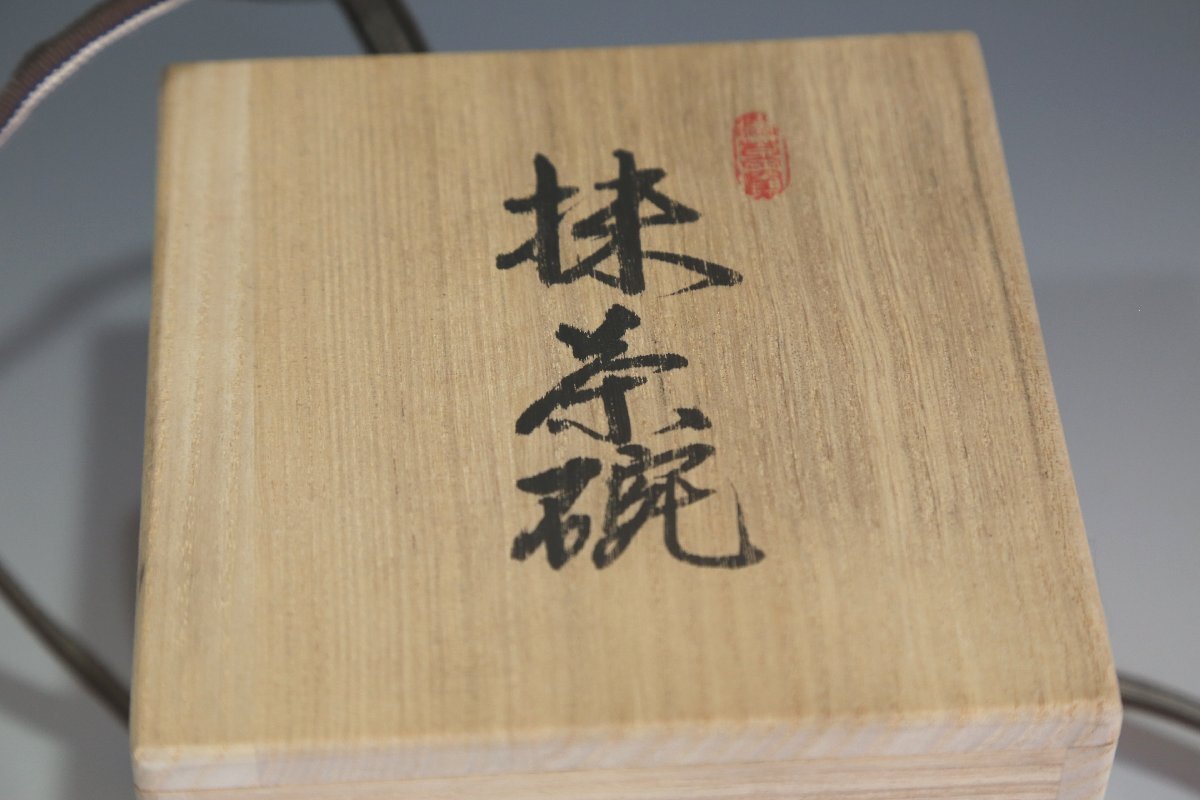 抹茶碗